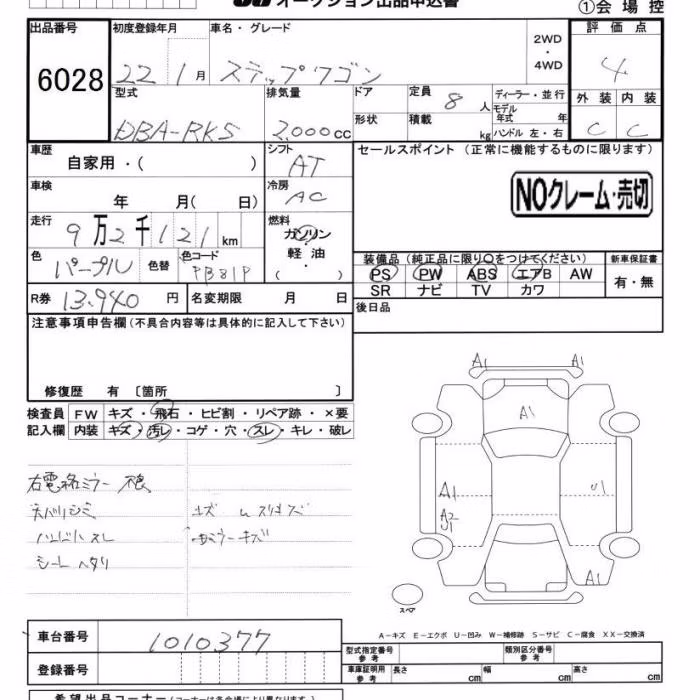 オークション出品申込書
①会場控
出品番号 初度登録年月 車名・グレード 評価点
6028 22 1月 ステップワゴン 2WD ・ 4WD 4
型式 排気量 ドア 定員 8 人 ディーラー・並行 外装 内装
モデル年式 年
DBA-RK5 2,000cc 形状 積載 kg ハンドル 左・右 C C
車歴 シフト セールスポイント (正常に機能するものに限ります)
自家用・( ) AT
車検 冷房 NOクレーム・売切
年 月( 日) AC
走行 燃料
9万2千121km ガソリン・軽油・( )
色 色替 色コード 装備品 (純正品に限り○をつけてください) 新車保証書
パープル PB81P PS PW ABS エアB AW 有・無
SR ナビ TV カワ
R券 13,940 円 名変期限 月 日 後日品
注意事項申告欄(不具合内容等は具体的に記入して下さい)
修復歴 有 〔箇所 〕
検査員 FW キズ・飛石・ヒビ割・リペア跡・×要
記入欄 内装 キズ・汚レ・コゲ・穴・スレ・キレ・破レ
A1 A1
A1
A1 U1
A2
U1
A1
右電格ミラー不良
ハンドルスレ
ミラーキズ
シートヘタリ
スペア
A-キズ E-エクボ U-凹み W-補修跡 S-サビ C-腐食 XX-交換済
車台番号 1010377
型式指定番号 参考 類別区分番号 参考
登録番号 車庫証明用 参考 長さ cm 幅 cm 高さ cm
希望出品コーナー(コーナーは各会場により異なります。)